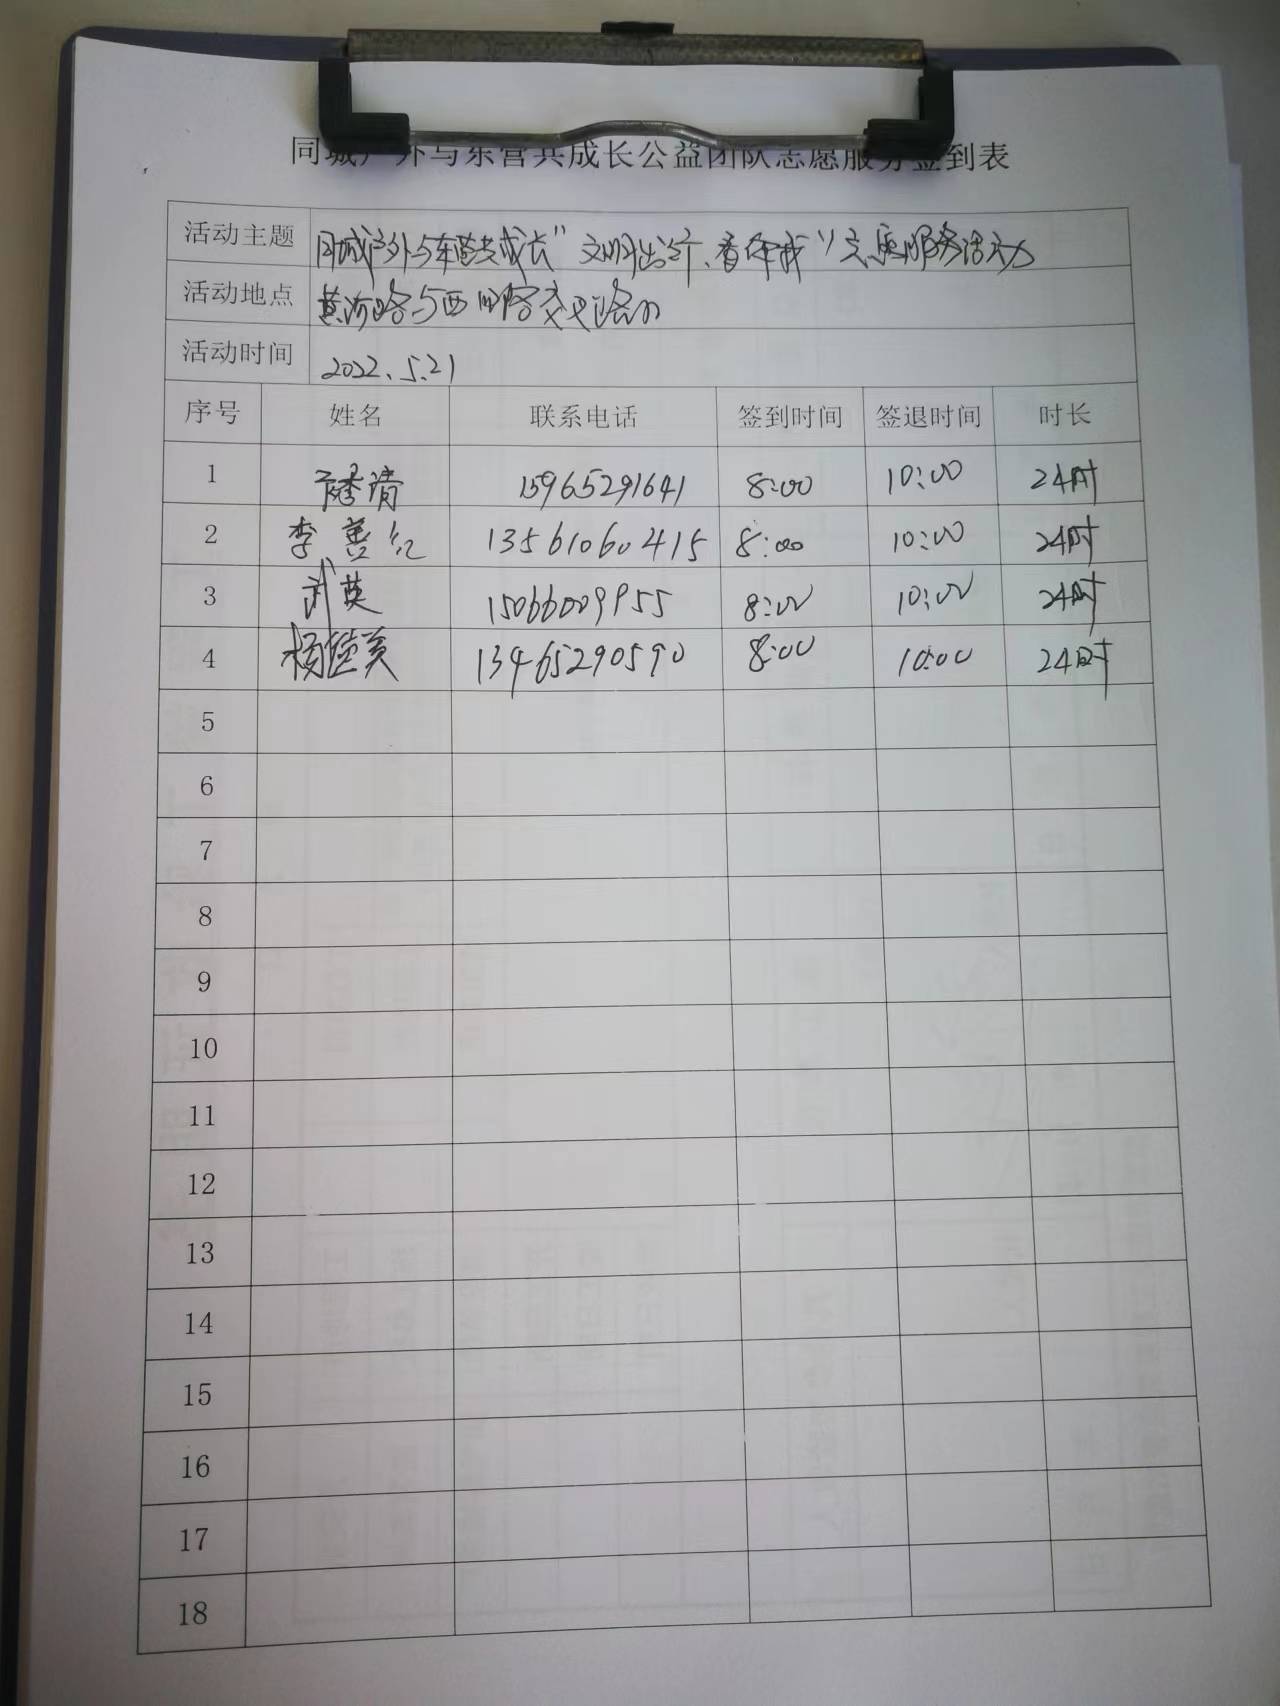 同城户外与东营共成长公益团队志愿服务签到表
活动主题 同城户外与东营共成长"文明出行、看我"志愿服务活动
活动地点 黄河路与西四路交叉路口
活动时间 2022.5.21
序号 姓名 联系电话 签到时间 签退时间 时长
1 清 15965291641 8:00 10:00 2小时
2 李善红 13561060415 8:00 10:00 2小时
3 武英 15066009955 8:00 10:00 2小时
4 杨美 13465290590 8:00 10:00 2小时
5
6
7
8
9
10
11
12
13
14
15
16
17
18